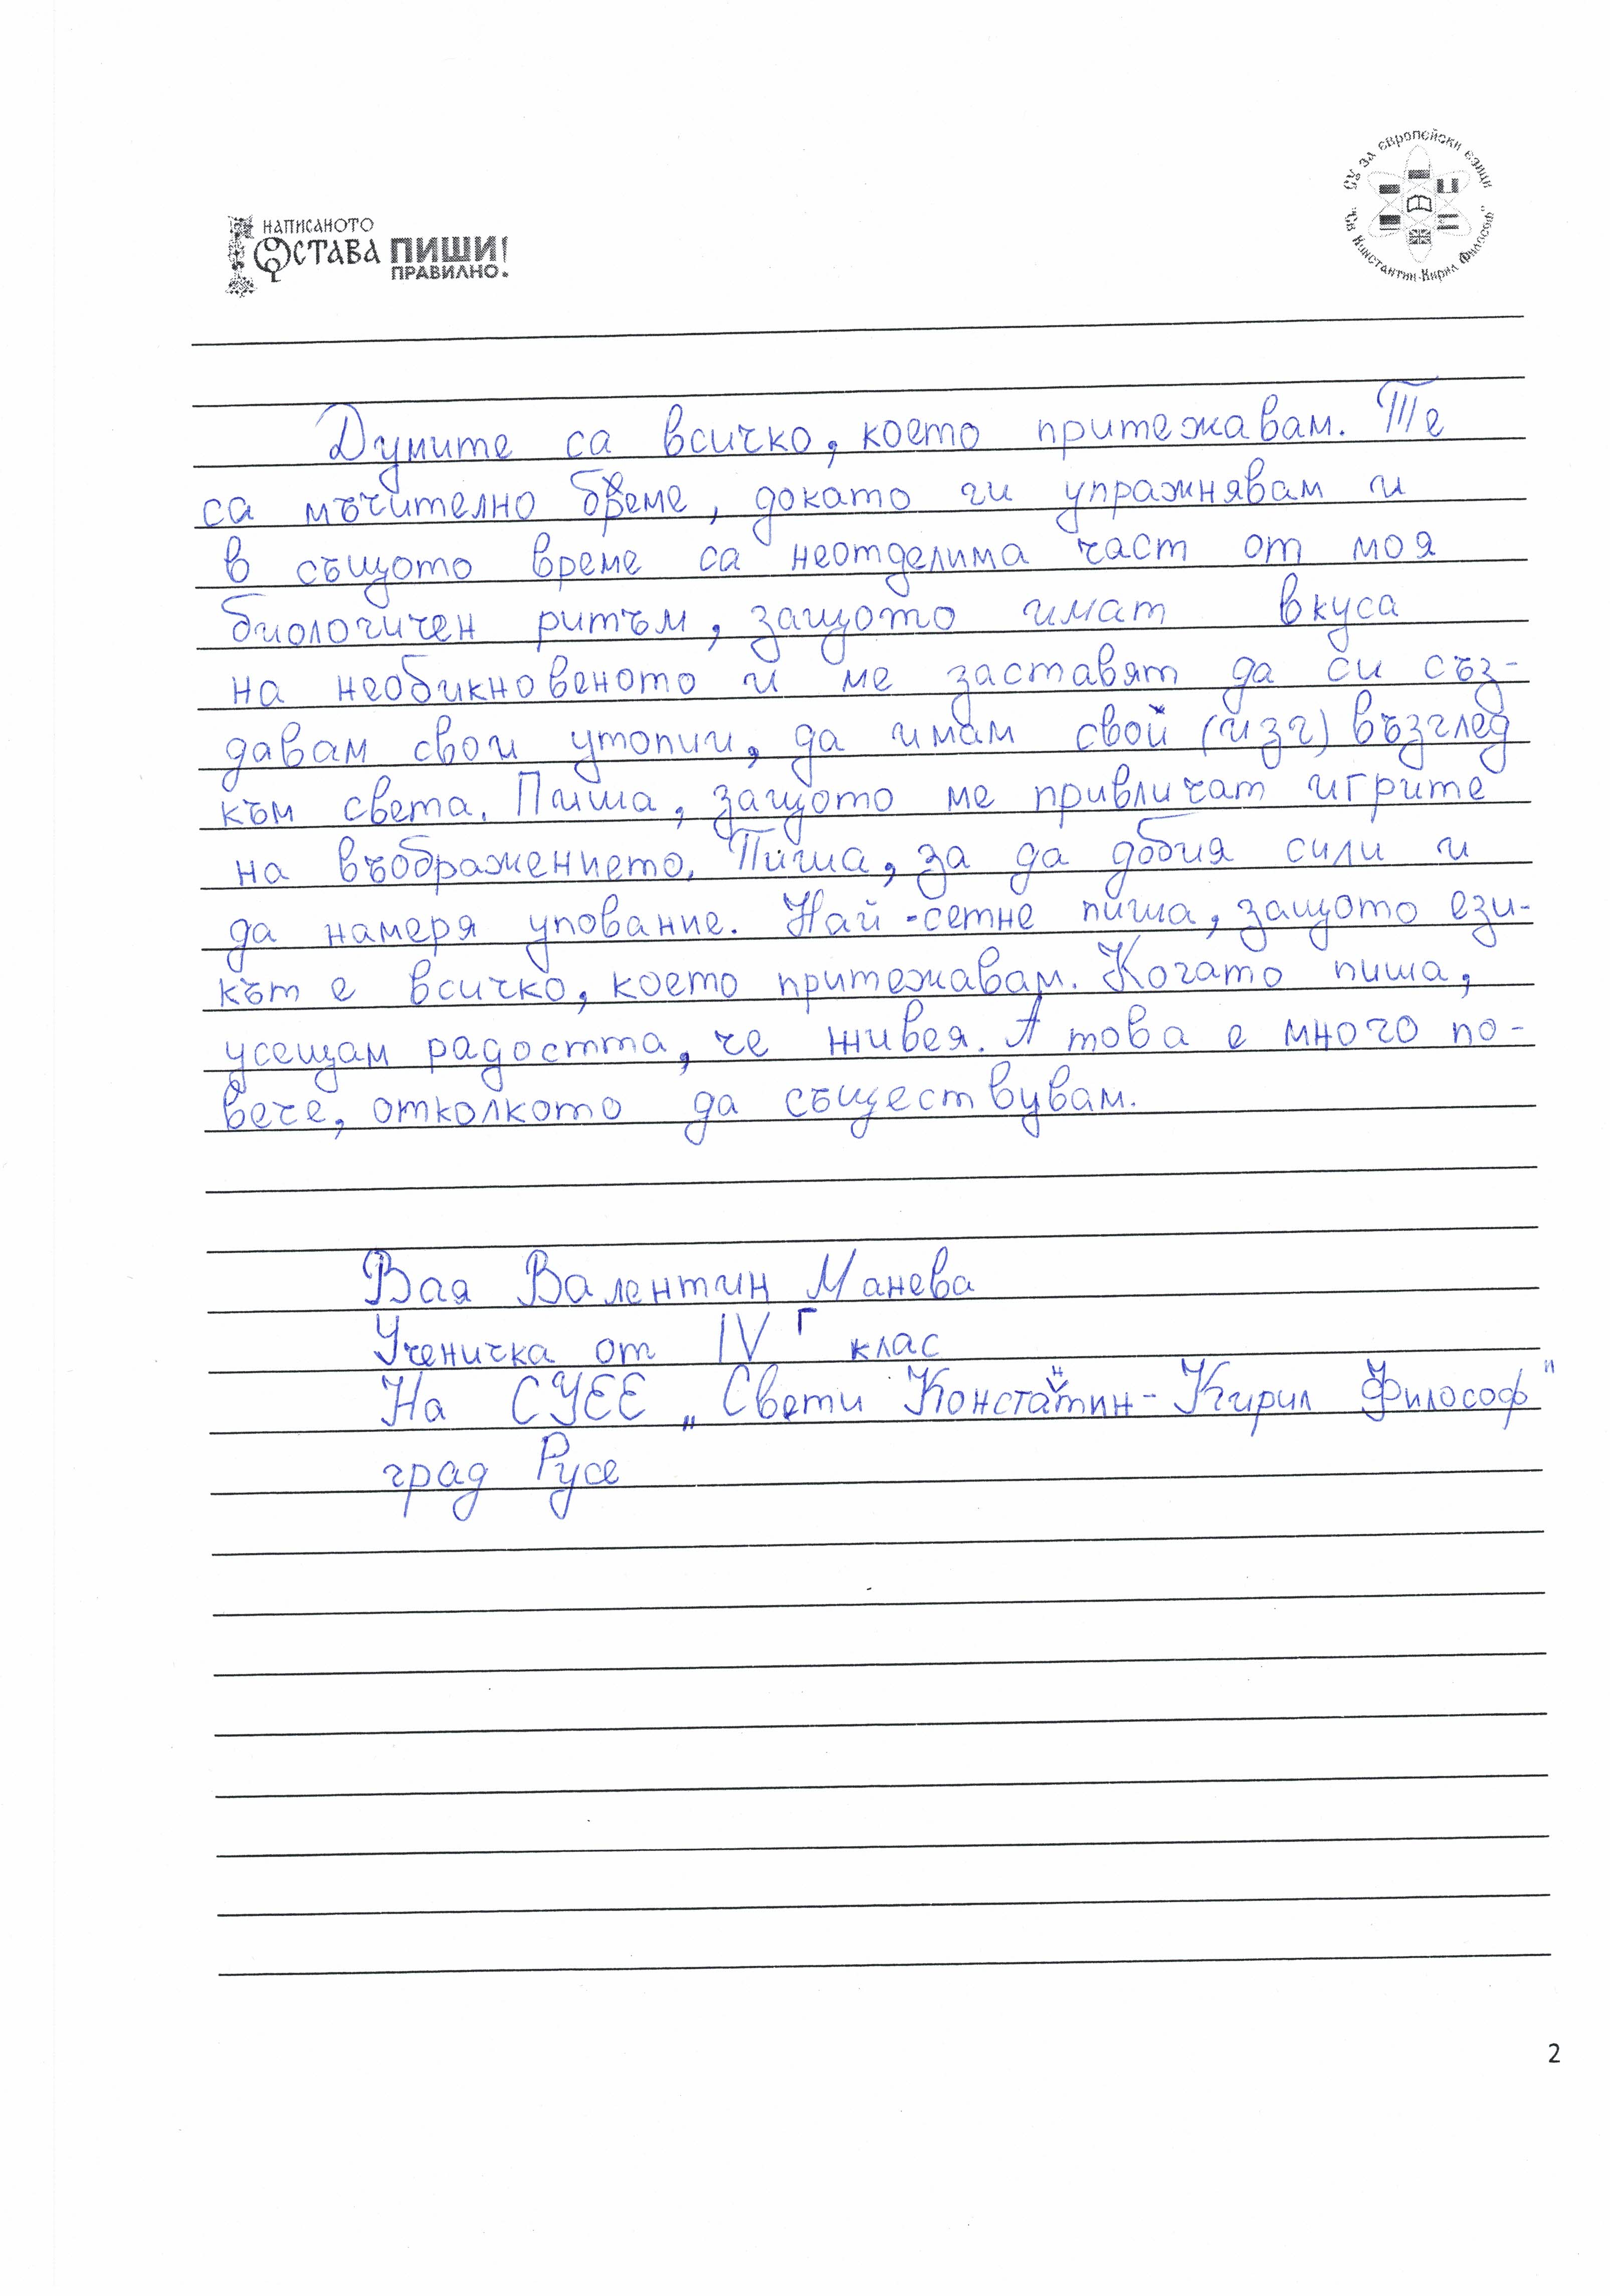 НАПИСАНОТО
ОСТАВА ПИШИ!
ПРАВИЛНО.
СУ за европейски езици
"Св. Константин-Кирил Философ"
Думите са всичко, което притежавам. Те
са мъчително бреме, докато ги упражнявам и
в същото време са неотделима част от моя
биологичен ритъм, защото имат вкуса
на необикновеното и ме заставят да си съз-
давам свои утопии, да имам свой (изг) възглед
към света. Пиша, защото ме привличат игрите
на въображението. Пиша, за да добия сили и
да намеря упование. Най-сетне пиша, защото ези-
кът е всичко, което притежавам. Когато пиша,
усещам радостта, че живея. А това е много по-
вече, отколкото да съществувам.
Вая Валентин Манева
Ученичка от IV г клас
На СУЕЕ „Свети Константин-Кирил Философ"
град Русе
2